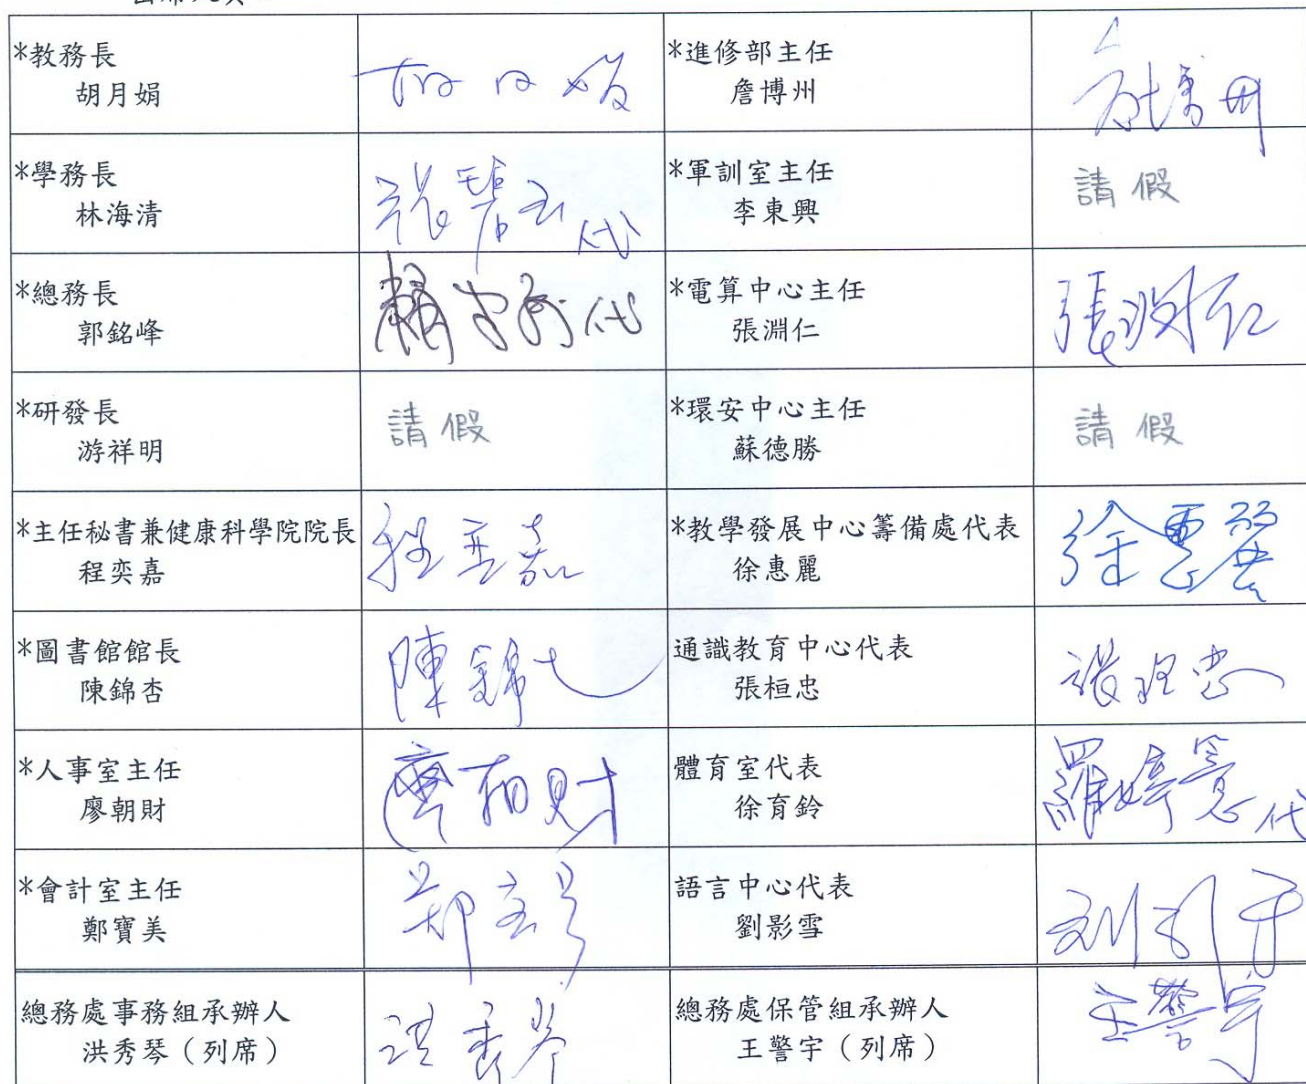 *教務長
胡月娟
胡月娟
*進修部主任
詹博州
詹博州
*學務長
林海清
張碧玉代
*軍訓室主任
李東興
請假
*總務長
郭銘峰
代
*電算中心主任
張淵仁
張淵仁
*研發長
游祥明
請假
*環安中心主任
蘇德勝
請假
*主任秘書兼健康科學院院長
程奕嘉
程奕嘉
*教學發展中心籌備處代表
徐惠麗
徐惠麗
*圖書館館長
陳錦杏
陳錦杏
通識教育中心代表
張桓忠
張桓忠
*人事室主任
廖朝財
廖朝財
體育室代表
徐育鈴
羅婷薏代
*會計室主任
鄭寶美
鄭寶美
語言中心代表
劉影雪
總務處事務組承辦人
洪秀琴（列席）
洪秀琴
總務處保管組承辦人
王警宇（列席）
王警宇